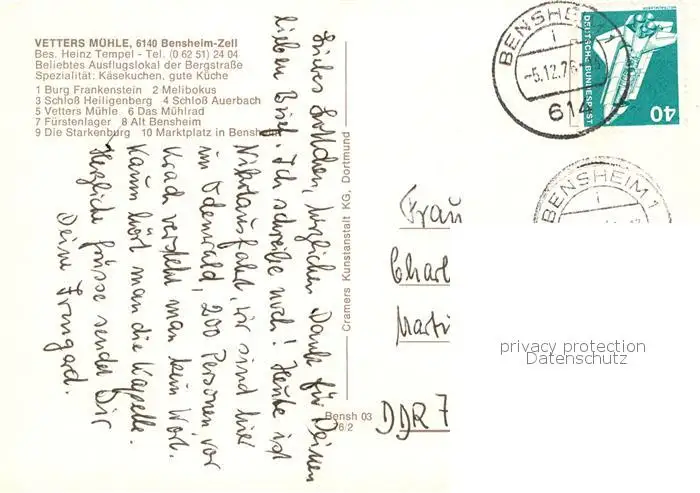 VETTERS MÜHLE, 6140 Bensheim-Zell
Bes. Heinz Tempel - Tel. (0 62 51) 24 04
Beliebtes Ausflugslokal der Bergstraße
Spezialität: Käsekuchen, gute Küche
1 Burg Frankenstein 2 Melibokus
3 Schloß Heiligenberg 4 Schloß Auerbach
5 Vetters Mühle 6 Das Mühlrad
7 Fürstenlager 8 Alt Bensheim
9 Die Starkenburg 10 Marktplatz in Bensheim
Liebes Lottchen, herzlichen Dank für Deinen
lieben Brief. Ich schreibe noch! Heute ist
Nikolausfahrt, wir sind hier
im Odenwald, 200 Personen vor
Krach versteht man kein Wort.
Kaum hört man die Kapelle.
Herzliche Grüsse sendet Dir
Deine Irmgard.
Cramers Kunstanstalt KG, Dortmund
Bensh 03
76/2
BENSHEIM 1
-5.12.76
614
DEUTSCHE BUNDESPOST
40
BENSHEIM 1
Frau
Charl
Marti
DDR 7
privacy protection
Datenschutz